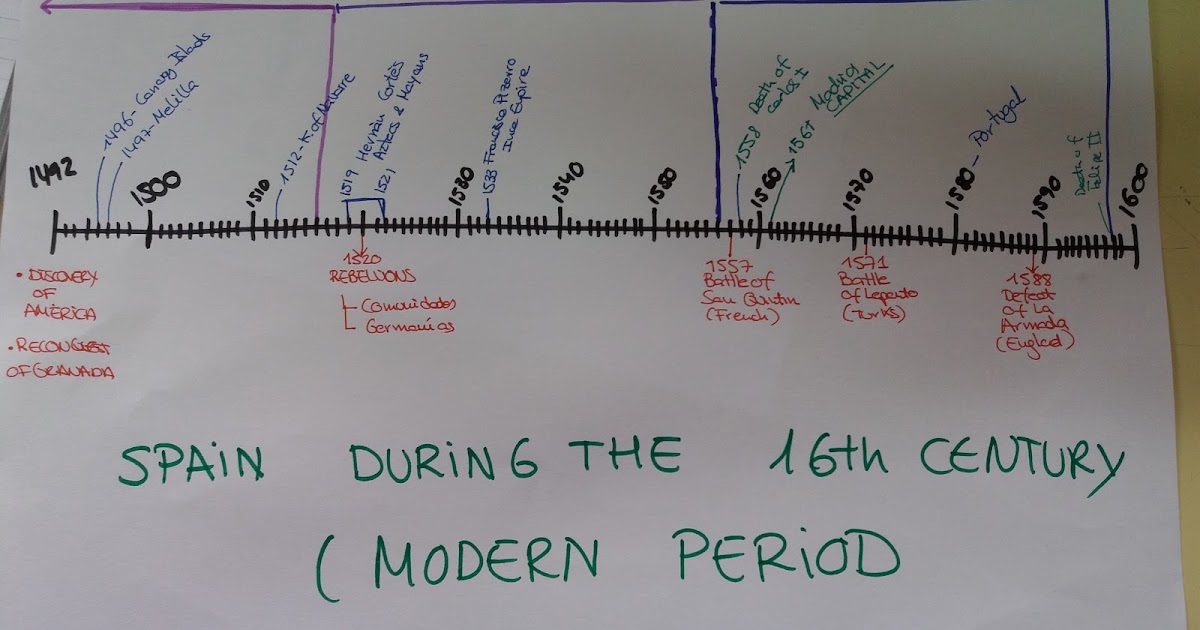 1496-Canary Islads
1497-Melilla
1512-K. of Navarre
1519 Hernán Cortés
1521 Aztecs & Mayans
1533 Francisco Pizarro
Inca Expire
1558 Death of
Carlos I
1561 Madrid
CAPITAL
1580 - Portugal
Death of
Felipe II
1492
1500
1510
1530
1540
1550
1560
1570
1580
1590
1600
• DISCOVERY
OF
AMÉRICA
• RECONQUEST
OF GRANADA
1520
REBELIONS
Comunidades
Germanías
1557
Battle of
San Quintin
(French)
1571
Battle
of Lepanto
(Turks)
1588
Defeat
of La
Armada
(Englad)
SPAIN DURING THE 16th CENTURY
( MODERN PERIOD